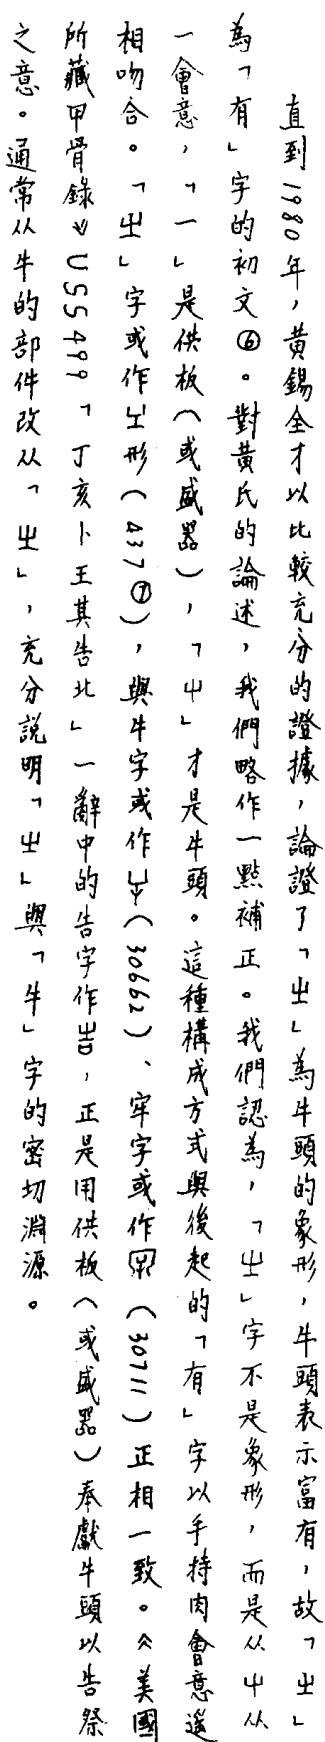 直到1980年，黃錫全才以比較充分的證據，論證了「㞢」為牛頭的象形，牛頭表示富有，故「㞢」
為「有」字的初文⑥。對黃氏的論述，我們略作一點補正。我們認為，「㞢」字不是象形，而是从屮从
一會意，「一」是供板（或盛器），「屮」才是牛頭。這種構成方式與後起的「有」字以手持肉會意遙
相吻合。「㞢」字或作形（437⑦），與牛字或作（30662）、牢字或作（30711）正相一致。《美國
所藏甲骨錄》USS499「丁亥卜王其告北」一辭中的告字作，正是用供板（或盛器）奉獻牛頭以告祭
之意。通常从牛的部件改从「㞢」，充分說明「㞢」與「牛」字的密切淵源。